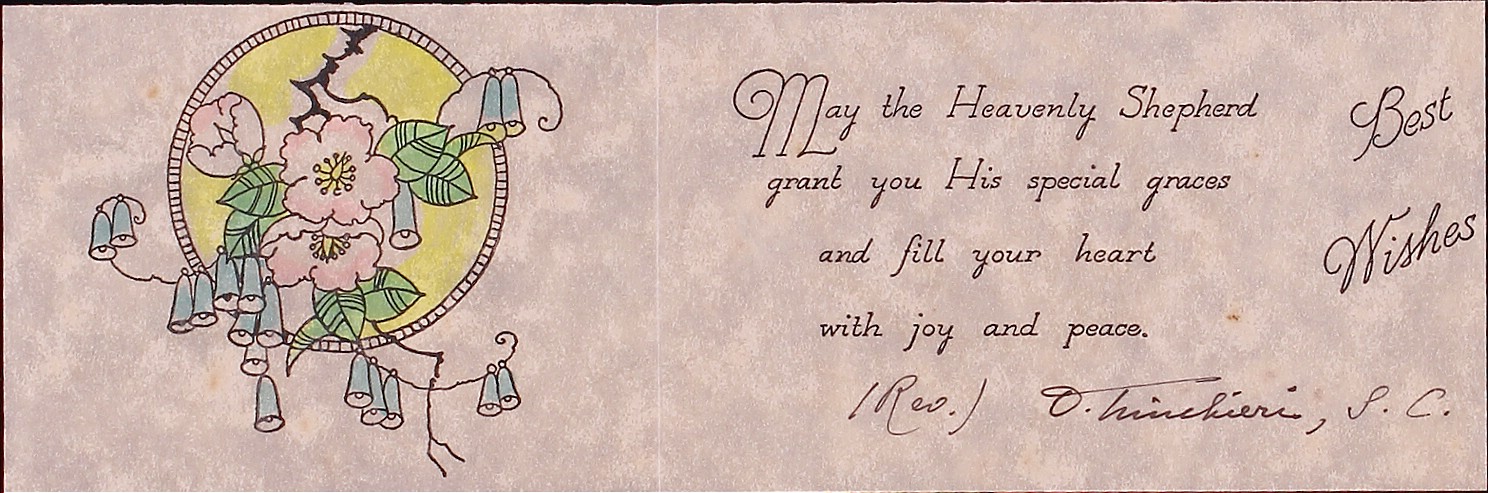 May the Heavenly Shepherd
grant you His special graces
and fill your heart
with joy and peace.
Best
Wishes
(Rev.) O. Trinchieri, S. C.